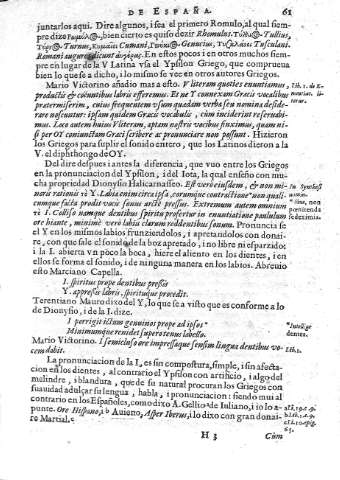 DE ESPAÑA. 61
juntarlos aqui. Dire algunos, i sea el primero Romulo, al qual siem-
pre dizo bien cierto es quiso dezir Rhomulus: Tullius,
Turnus, Cumani, Genucius, Tusculani.
Romani augures dicunt En estos pocos i en otros muchos siem
pre en lugar de la V Latina vsa el Ypsilon Griego, que comprueua
bien lo que se a dicho, i lo mismo se vee en otros autores Griegos.
Mario Victorino añadio mas a esto. V literam quoties enuntiamus,
productis & coeuntibus labris efferemus. Et ne V cunctcam Graecis vocalibus
praetermiserim, cuius frequentem vsum quædam verba seu nomina deside-
rare noscuntur: ipsam quidem Graecis vocabulis, cum inciderint reseruabi-
mus. Loco autem huius V literam, aptam nostris vocibus finximus, quam ni
si per OY coniunctam Graeci scribere ac pronunciare non possunt. Hizieron
los Griegos para suplir el sonido entero, que los Latinos dieron a la
V. el diphthongo de OY.
Del dire despues i antes la diferencia, que vuo entre los Griegos
en la pronunciacion del Ypsilon, i del Iota, la qual enseñò con mu-
cha propriedad Dionysio Halicarnasseo. Est verò eiusdem, & non mi-
noris rationis ti Y. Labia enim circa ipsa, eorumque contractione non quali-
cumque facta prodit vocis sonus arctè pressus. Extremum autem omnium
ti I. Collisio namque dentibus spiritu profertur in enuntiatione paululum
ore hiante, minimè verò labia clarum reddentibus sonum. Pronuncia se
el Y en los mismos labios frunziendolos, i apretandolos con donei-
re, con que sale el sonido de la boz apretado, i no libre ni esparzido:
i la I. abierta vn poco la boca, hiere el aliento en los dientes, i en
ellos se forma el sonido, i de ninguna manera en los labios. Abreuio
esto Marciano Capella.
I. spiritus prope dentibus pressis
Y. appressis labris, spirituque procedit.
Terentiano Mauro dixo del Y, lo que se a visto que es conforme a lo
de Dionysio, de la I. dize.
I porrigit ictum genuinos prope ad ipsos
Minimumque renidet supero tenus labello.
Mario Victorino. I semicluso ore impressaque sensim lingua dentibus vo-
cem dabit.
La pronunciacion de la I, es sin compostura, simple, i sin afecta-
cion en los dientes, al contrario el Ypsilon con artificio, i algo del
melindre, i blandura, que de su natural procuran los Griegos con
suauidad adulçar su lengua, habla, i pronunciacion: siendo mui al
contrario en los Españoles, como dixo A. Gellio de Iuliano, i io lo a-
punte. Ore Hispano, i Auieno, Asper Iberus, i lo dixo con gran donai-
re Martial.
H 3 Com